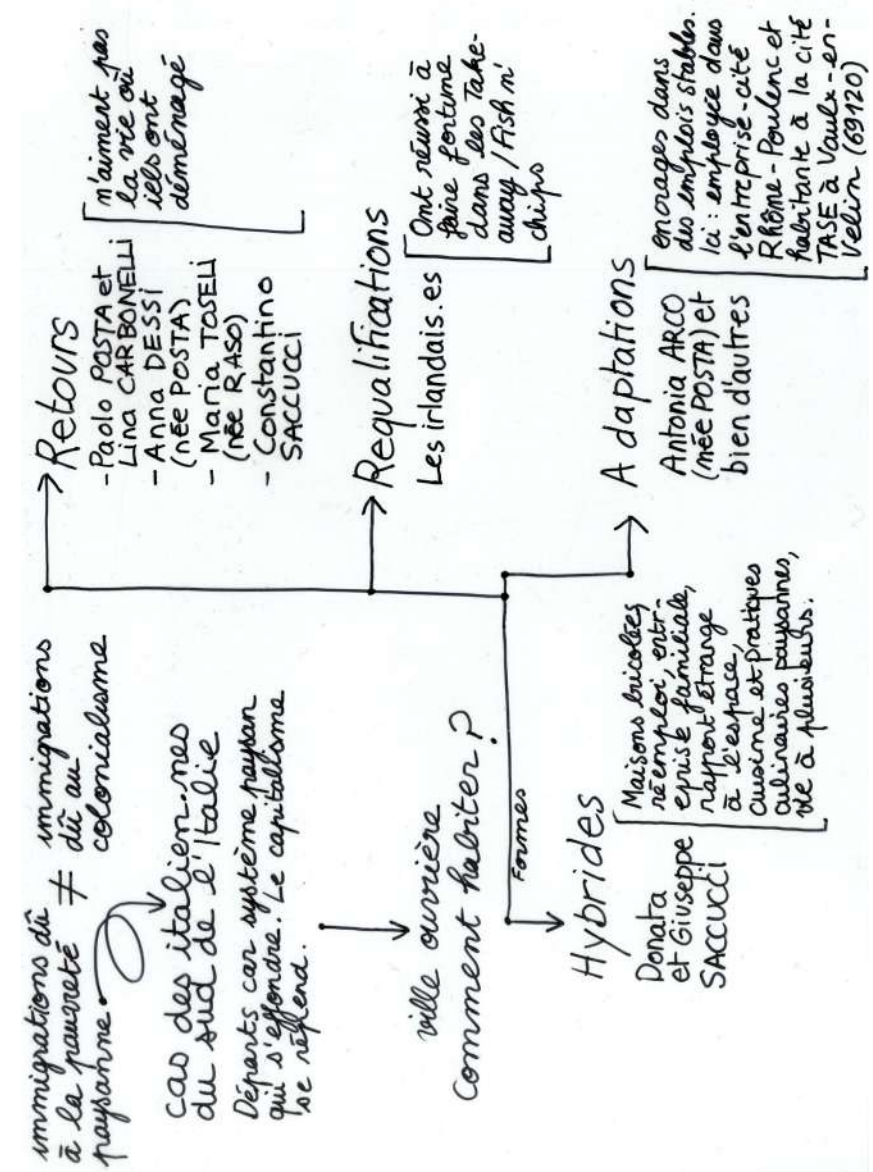 immigrations dû
à la pauvreté
paysanne.
≠
immigrations
dû au
colonialisme
cas des italien.nes
du sud de l'Italie
Départs car système paysan
qui s'effondre. Le capitalisme
se répend.
ville ouvrière
Comment habiter ?
Formes
Hybrides
Donata
et Giuseppe
SACCUCCI
Maisons bricolées,
réemploi, entr-
eprise familiale,
rapport étrange
à l'espace,
cuisine et pratiques
culinaires paysannes,
vie à plusieurs.
Retours
- Paolo POSTA et
Lina CARBONELLI
- Anna DESSI
(née POSTA)
- Maria TOSELI
(née RASO)
- Constantino
SACCUCCI
n'aiment pas
la vie où
iels ont
déménagé
Requalifications
Les irlandais.es
Ont réussi à
faire fortune
dans les Take-
away / Fish n'
chips
Adaptations
Antonia ARCO
(née POSTA) et
bien d'autres
encrages dans
des emplois stables.
Ici : employée dans
l'entreprise-cité
Rhône-Poulenc et
habitante à la cité
TASE à Vaulx-en-
Velin (69120)